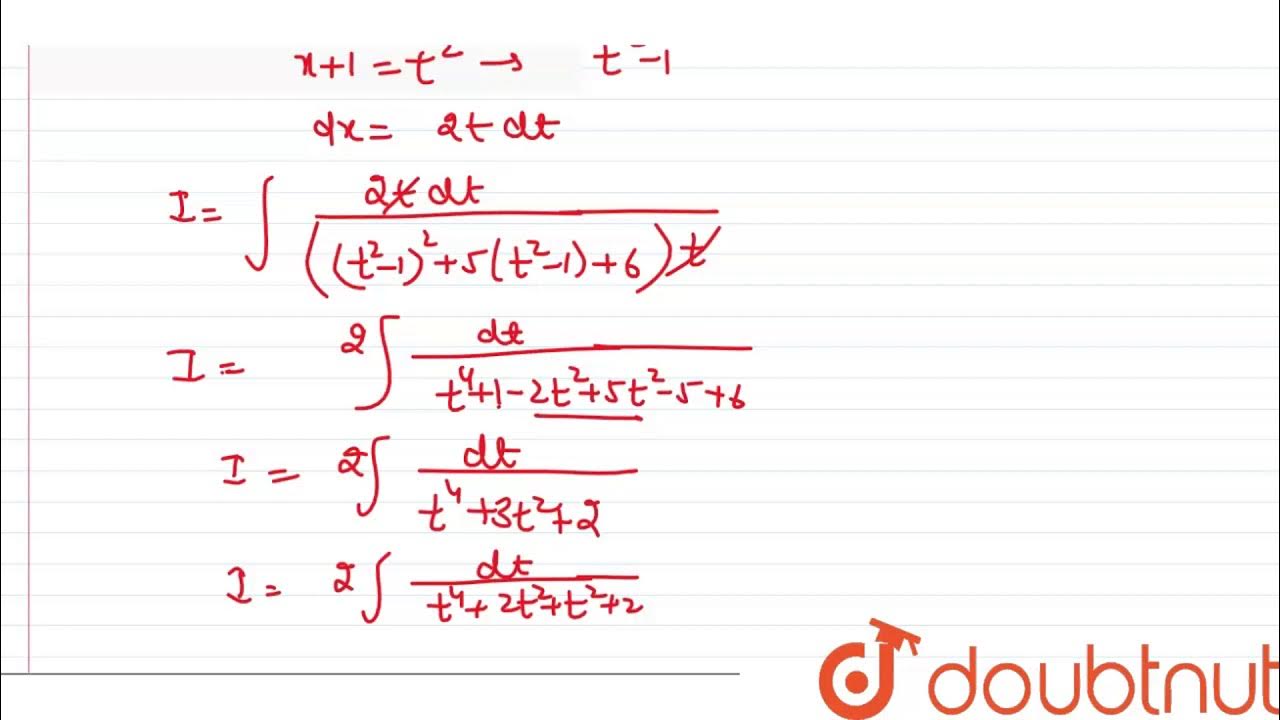 x+1 = t² → t²-1
dx = 2t dt
I = ∫ 2t dt / ((t²-1)²+5(t²-1)+6) t
I = 2∫ dt / t⁴+1-2t²+5t²-5+6
I = 2∫ dt / t⁴+3t²+2
I = 2∫ dt / t⁴+2t²+t²+2
doubtnut